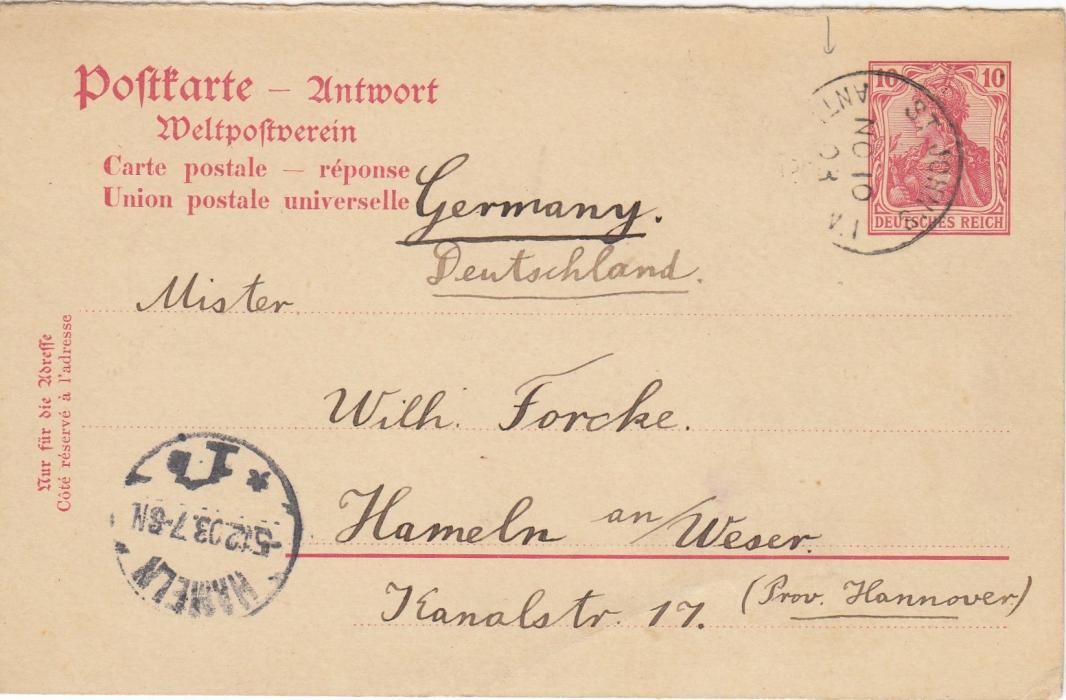 Postkarte – Antwort
Weltpostverein
Carte postale — réponse
Union postale universelle
10 10
DEUTSCHES REICH
ST. JOHN'S
ANT
NO 10
03
Germany.
Deutschland.
Mister
Wilh. Forcke.
Hameln an/Weser.
Kanalstr. 17. (Prov. Hannover)
Nur für die Adresse
Côté réservé à l'adresse
HAMELN
5.12.03.7-8N.
* 1